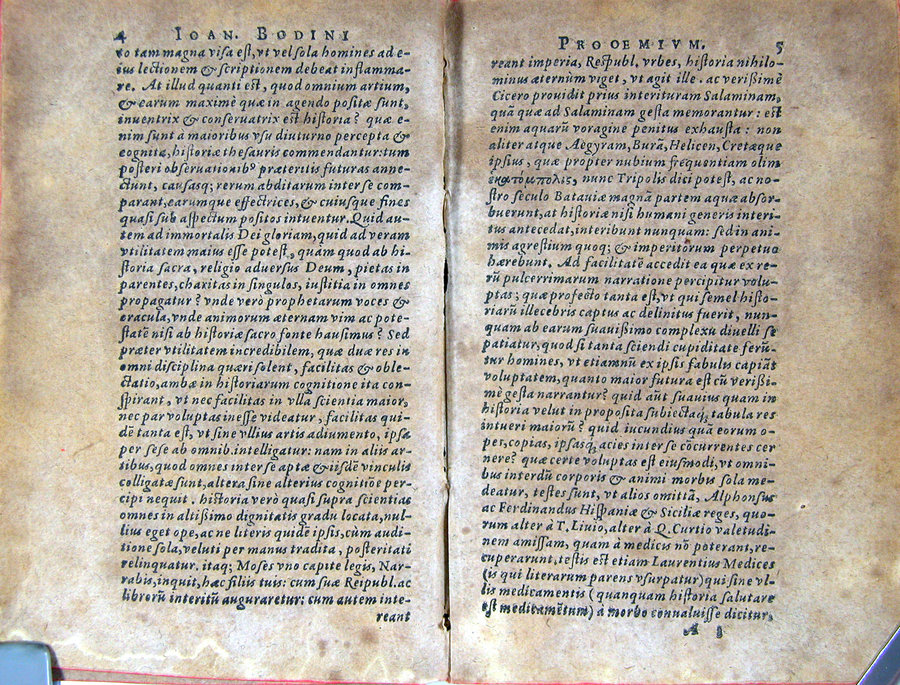 4 IOAN. BODINI
to tam magna visa est, vt vel sola homines ad e-
ius lectionem & scriptionem debeat inflamma-
re. At illud quanti est, quod omnium artium,
& earum maximè quæ in agendo positæ sunt,
inuentrix & conseruatrix est historia? quæ e-
nim sunt à maioribus vsu diuturno percepta &
cognita, historiæ thesauris commendantur: tum
posteri obseruationibꝰ præteritis futuras anne-
ctunt, causasq; rerum abditarum inter se com-
parant, earumque effectrices, & cuiusque fines
quasi sub aspectum positos intuentur. Quid au-
tem ad immortalis Dei gloriam, quid ad veram
vtilitatem maius esse potest, quàm quod ab hi-
storia sacra, religio aduersus Deum, pietas in
parentes, charitas in singulos, iustitia in omnes
propagatur? vnde verò prophetarum voces &
oracula, vnde animorum æternam vim ac pote-
statē nisi ab historiæ sacro fonte hausimus? Sed
præter vtilitatem incredibilem, quæ duæ res in
omni disciplina quæri solent, facilitas & oble-
ctatio, ambæ in historiarum cognitione ita con-
spirant, vt nec facilitas in vlla scientia maior,
nec par voluptas inesse videatur, facilitas qui-
dē tanta est, vt sine vllius artis adiumento, ipsa
per sese ab omnib. intelligatur: nam in aliis ar-
tibus, quod omnes inter se aptæ & iisdē vinculis
colligatæ sunt, altera sine alterius cognitiōe per-
cipi nequit. historia verò quasi supra scientias
omnes in altissimo dignitatis gradu locata, nul-
lius eget ope, ac ne literis quidē ipsis, cùm audi-
tione sola, veluti per manus tradita, posteritati
relinquatur. itaq; Moses vno capite legis, Nar-
rabis, inquit, hæc filiis tuis: cum suæ Reipubl. ac
librorū interitū auguraretur: cum autem inte-
reant
PROOEMIVM. 5
reant imperia, Respubl. vrbes, historia nihilo-
minus æternùm viget, vt agit ille. ac verissimè
Cicero prouidit prius interituram Salaminam,
quā quæ ad Salaminam gesta memorantur: est
enim aquarū voragine penitus exhausta: non
aliter atque Aegyram, Burā, Helicen, Cretæque
ipsius, quæ propter nubium frequentiam olim
ἑκατόμπολις, nunc Tripolis dici potest, ac no-
stro seculo Batauiæ magnā partem aquæ absor-
buerunt, at historiæ nisi humani generis interi-
tus antecedat, interibunt nunquam: sed in ani-
mis agrestium quoq; & imperitorum perpetuo
hærebunt. Ad facilitatē accedit ea quæ ex re-
rū pulcerrimarum narratione percipitur volu-
ptas; quæ profecto tanta est, vt qui semel histo-
riarū illecebris captus ac delinitus fuerit, nun-
quam ab earum suauissimo complexu diuelli se
patiatur, quod si tanta sciendi cupiditate ferū-
tur homines, vt etiamnū ex ipsis fabulis capiāt
voluptatem, quanto maior futura est cū verissi-
mè gesta narrantur? quid aūt suauius quam in
historia velut in proposita subiectaq; tabula res
intueri maiorū? quid iucundius quā eorum o-
pes, copias, ipsasq; acies inter se cōcurrentes cer
nere? quæ certe voluptas est eiusmodi, vt omni-
bus interdū corporis & animi morbis sola me-
deatur, testes sunt, vt alios omittā, Alphonsus
ac Ferdinandus Hispaniæ & Siciliæ reges, quo-
rum alter à T. Liuio, alter à Q. Curtio valetudi-
nem amissam, quam à medicis nō poterant, re-
cuperarunt. testis est etiam Laurentius Medices
(is qui literarum parens vsurpatur) qui sine vl-
lis medicamentis (quanquam historia salutare
est medicamētum) à morbo conualuisse dicitur,
A 3